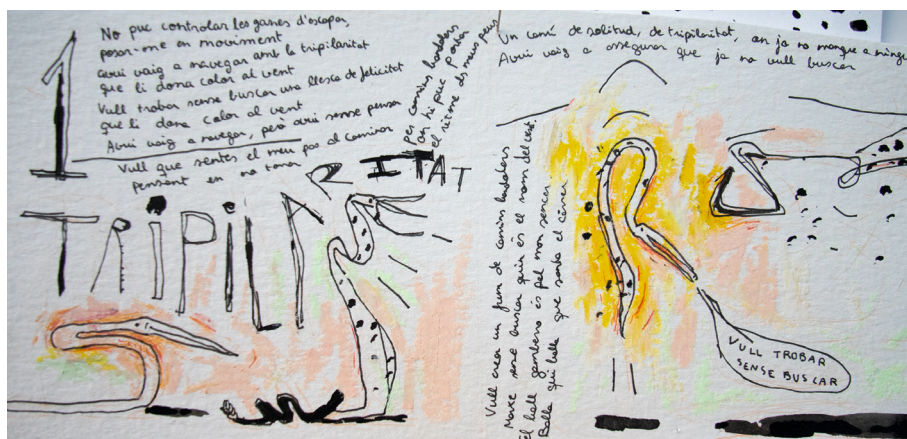 1
No puc controlar les ganes d'escapar,
posar-me en moviment
avui vaig a navegar amb la tripilaritat
que li dona color al vent
Vull trobar sense buscar una llesca de felicitat
que li dona color al vent
Avui vaig a navegar, però avui sense pensar
Vull que sentes el meu pas al caminar
pensant en no tornar
per camins
on hi puc portar
el ritme dels meus peus
TRIPILARITAT
Un camí de solitud, de tripilaritat, on ja no manque a ningú
Avui vaig a assegurar que ja no vull buscar
Vull crear un fum de camins
Moure sense buscar quin és el nom del cest.
El ball és pel mon sencer
Balla qui balla que santa el
VULL TROBAR
SENSE BUSCAR